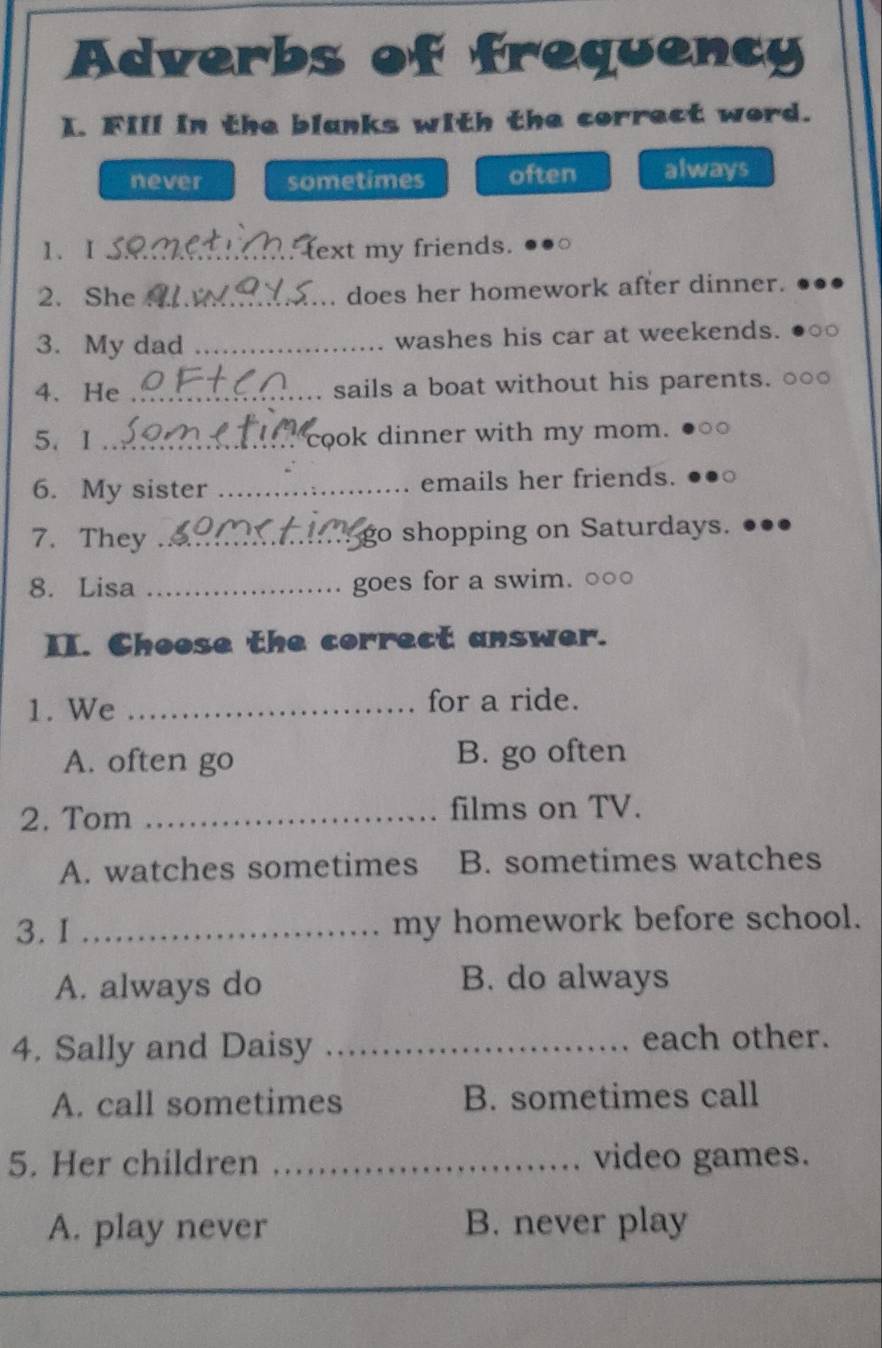 Adverbs of frequency
I. Fill in the blanks with the correct word.
never sometimes often always
1. I sometimes text my friends. ●●○
2. She always does her homework after dinner. ●●●
3. My dad .................... washes his car at weekends. ●○○
4. He often sails a boat without his parents. ○○○
5. I sometime cook dinner with my mom. ●○○
6. My sister .................... emails her friends. ●●○
7. They sometimes go shopping on Saturdays. ●●●
8. Lisa .................... goes for a swim. ○○○
II. Choose the correct answer.
1. We ........................... for a ride.
A. often go B. go often
2. Tom ........................... films on TV.
A. watches sometimes B. sometimes watches
3. I ........................... my homework before school.
A. always do B. do always
4. Sally and Daisy ........................... each other.
A. call sometimes B. sometimes call
5. Her children ........................... video games.
A. play never B. never play